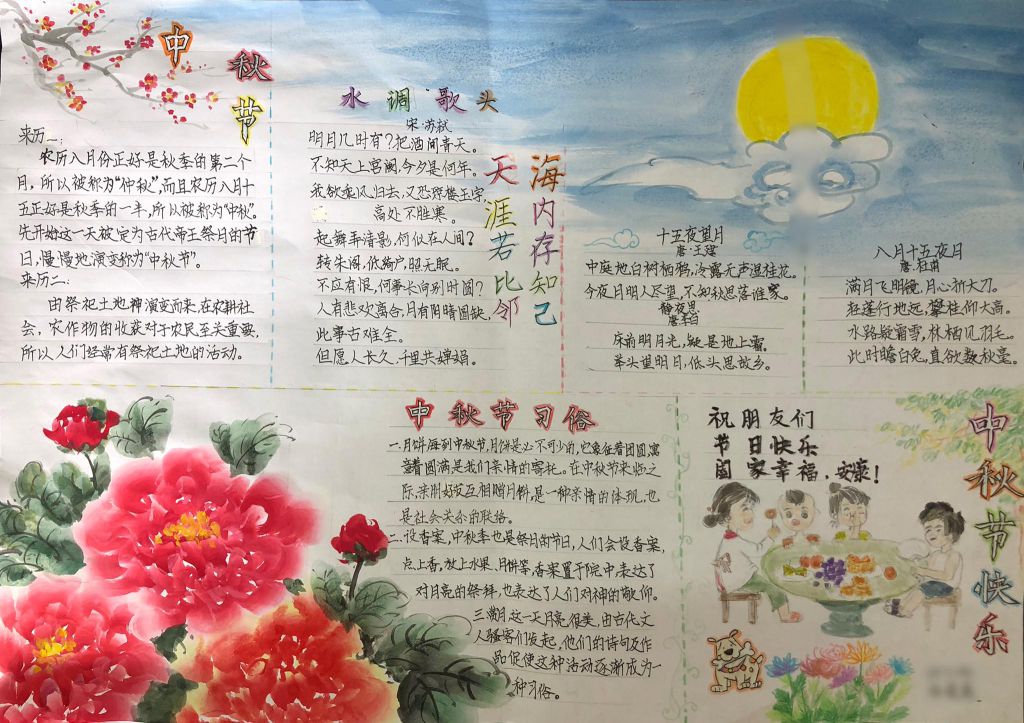 中秋节
来历一:
农历八月份正好是秋季的第二个
月,所以被称为“仲秋”,而且农历八月十
五正好是秋季的一半,所以被称为“中秋”。
先开始这一天被定为古代帝王祭月的节
日,慢慢地演变称为“中秋节”。
来历二:
由祭祀土地神演变而来,在农耕社
会,农作物的收获对于农民至关重要,
所以人们经常有祭祀土地的活动。
水调歌头
宋·苏轼
明月几时有?把酒问青天。
不知天上宫阙,今夕是何年。
我欲乘风归去,又恐琼楼玉宇,
高处不胜寒。
起舞弄清影,何似在人间?
转朱阁,低绮户,照无眠。
不应有恨,何事长向别时圆?
人有悲欢离合,月有阴晴圆缺,
此事古难全。
但愿人长久,千里共婵娟。
海内存知己
天涯若比邻
十五夜望月
唐·王建
中庭地白树栖鸦,冷露无声湿桂花。
今夜月明人尽望,不知秋思落谁家。
静夜思
唐·李白
床前明月光,疑是地上霜,
举头望明月,低头思故乡。
八月十五夜月
唐·杜甫
满月飞明镜,归心折大刀。
转蓬行地远,攀桂仰天高。
水路疑霜雪,林栖见羽毛。
此时瞻白兔,直欲数秋毫。
中秋节习俗
一.月饼:每到中秋节,月饼是必不可少的,它象征着团圆,寓
意着圆满,是我们亲情的寄托。在中秋节来临之
际,亲朋好友互相赠月饼,是一种亲情的体现,也
是社会关系的联络。
二.设香案,中秋季也是祭月的节日,人们会设香案,
点上香,放上水果,月饼等,香案置于院中表达了
对月亮的祭拜,也表达了人们对神的敬仰。
三.满月这一天月亮很美,由古代文
人骚客们发起,他们的诗句及作
品促使这种活动逐渐成为一
种习俗。
祝朋友们
节日快乐
阖家幸福,安康!
中秋节快乐